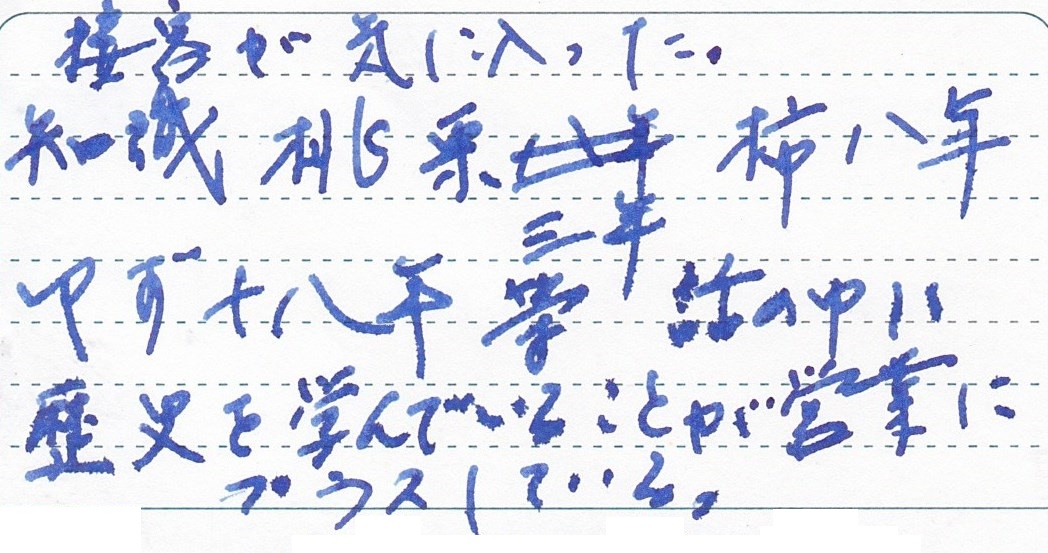 接客が気に入った。
知識 桃栗 柿八年
三年
ゆず十八年 等 話の中に
歴史を学んでいることが営業に
プラスしている。